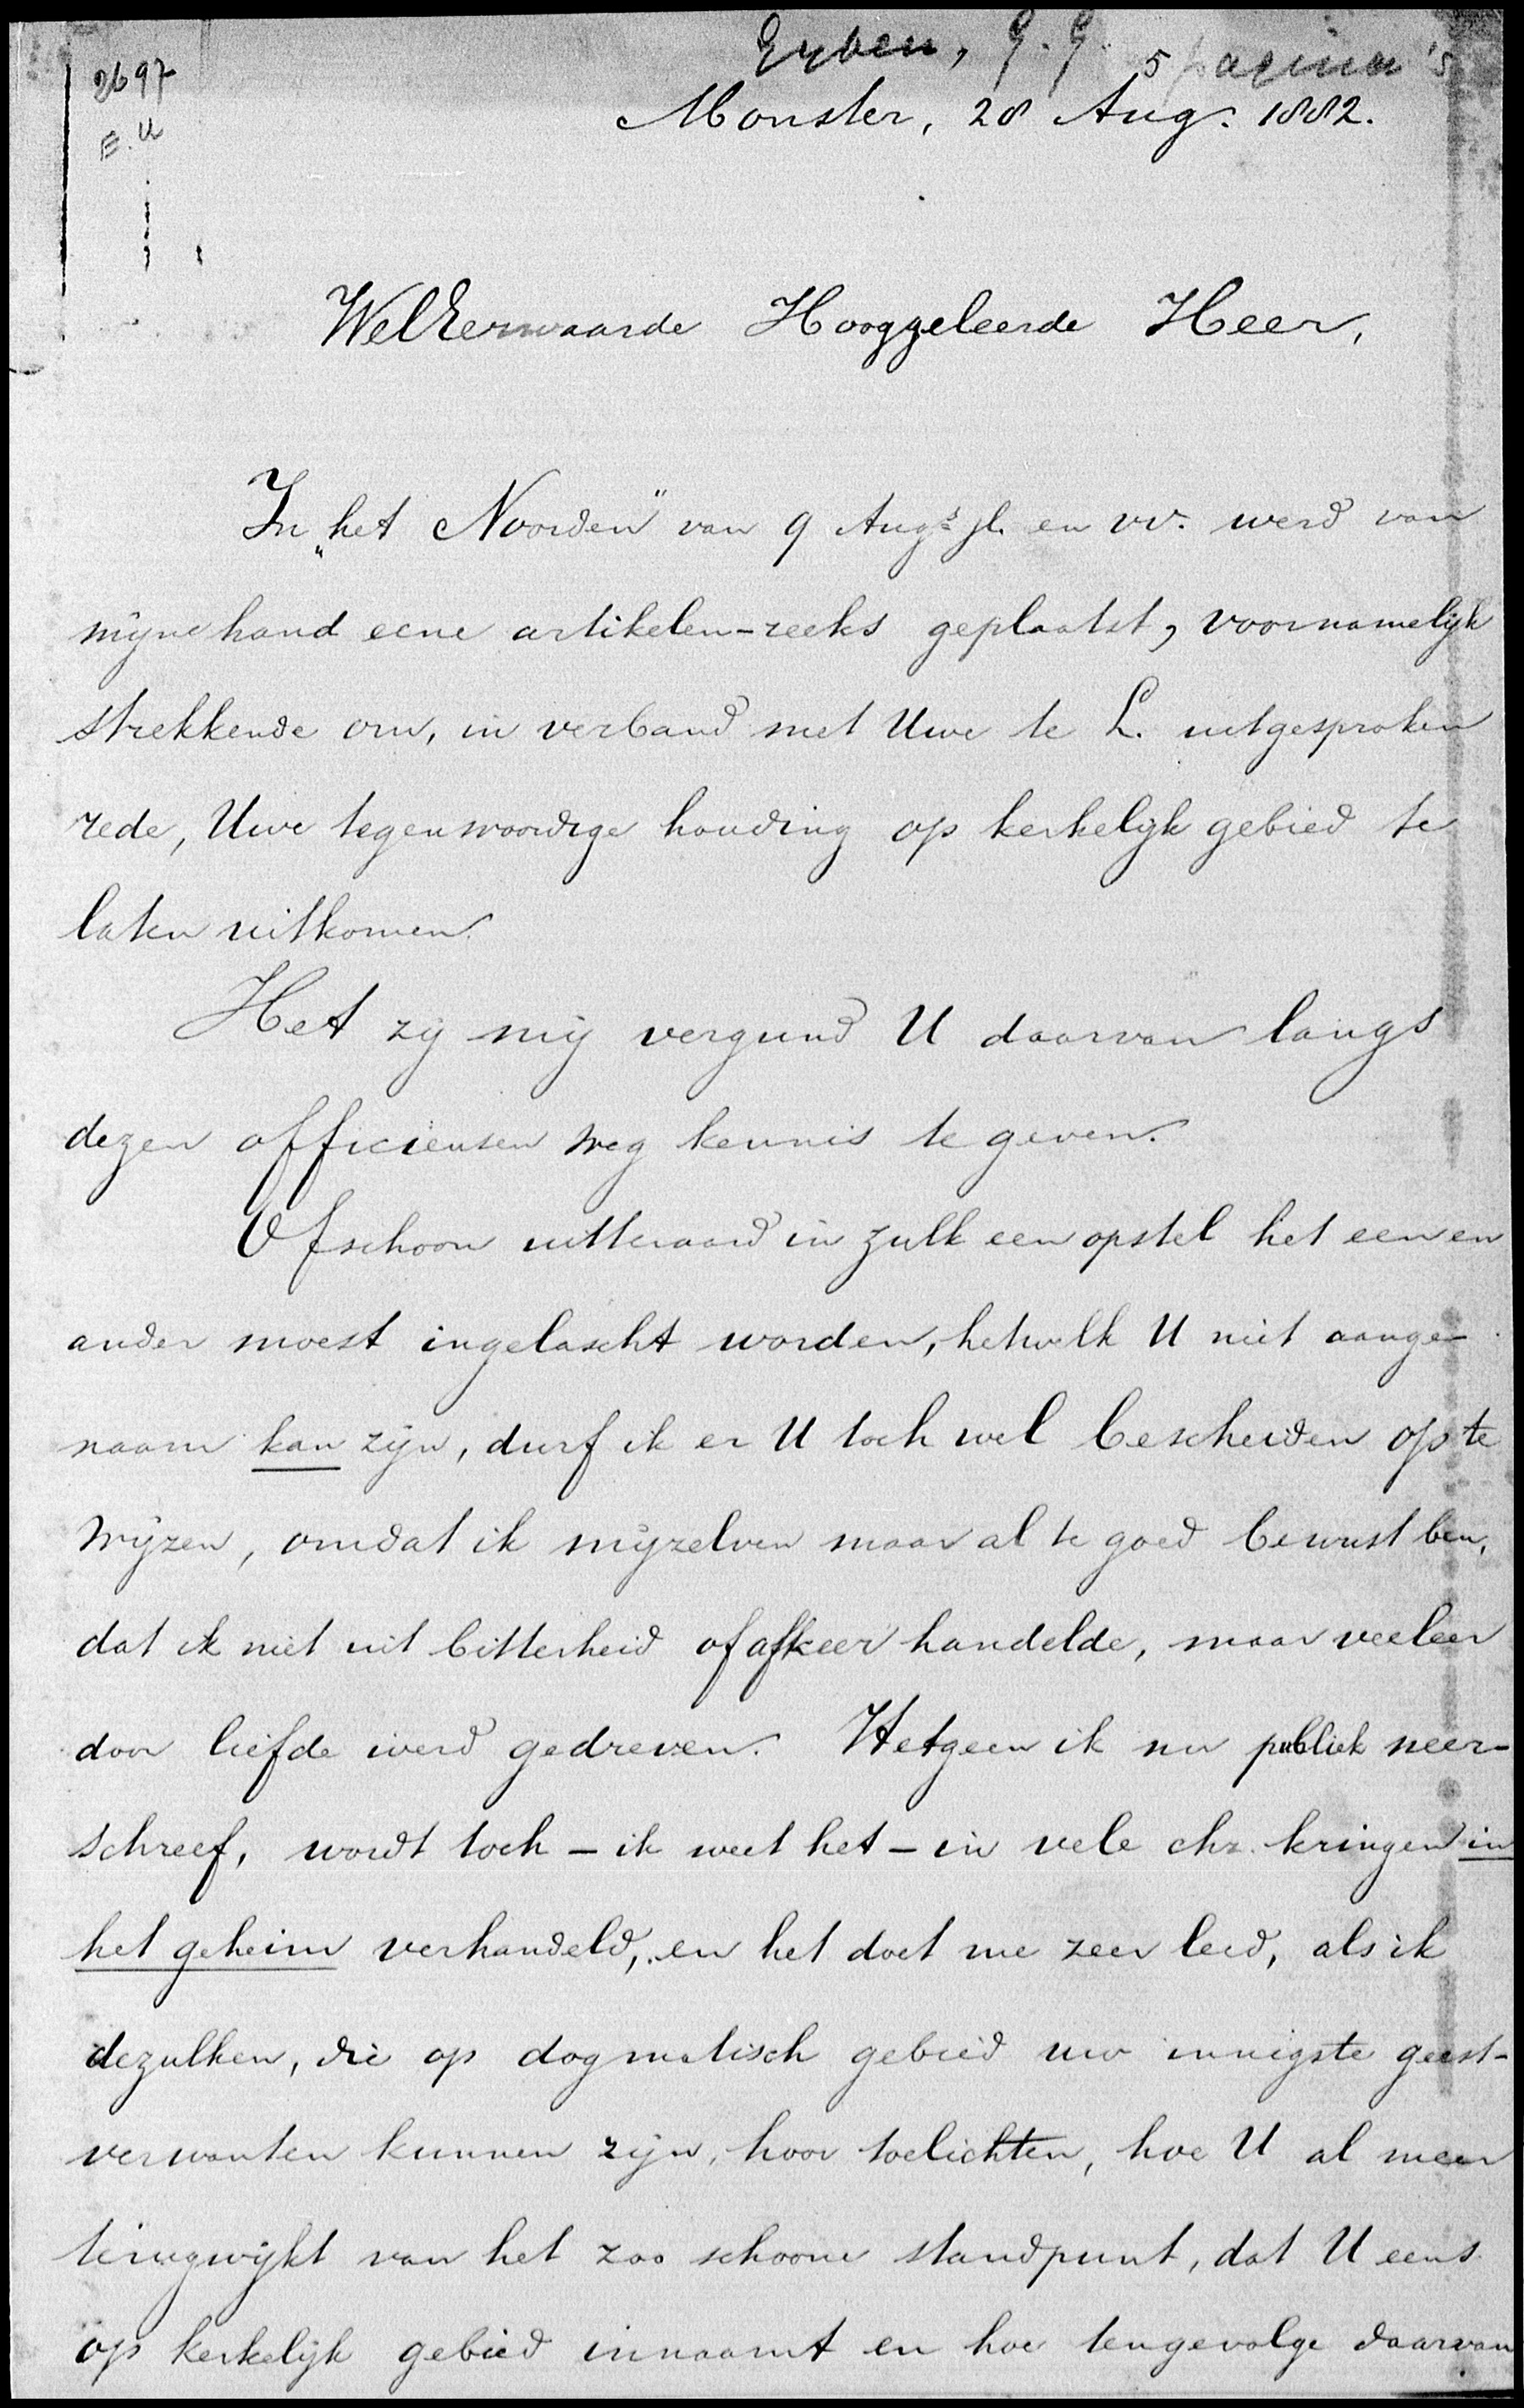 2697
E.U
Erben, G.G. 5 pagina's
Monster, 28 Aug. 1882.
WelEerwaarde Hooggeleerde Heer,
In „het Noorden” van 9 Augs. jl. en vv. werd van
mijne hand eene artikelen-reeks geplaatst, voornamelijk
strekkende om, in verband met Uwe te L. uitgesproken
rede, Uwe tegenwoordige houding op kerkelijk gebied te
laten uitkomen.
Het zij mij vergund U daarvan langs
dezen officieusen weg kennis te geven.
Ofschoon uitteraard in zulk een opstel het een en
ander moest ingelascht worden, hetwelk U niet aange-
naam kan zijn, durf ik er U toch wel bescheiden op te
wijzen, omdat ik mijzelven maar al te goed bewust ben,
dat ik niet uit bitterheid of afkeer handelde, maar veeleer
door liefde werd gedreven. Hetgeen ik nu publiek neer-
schreef, wordt toch – ik weet het – in vele chr. kringen in
het geheim verhandeld, en het doet me zeer leed, als ik
dezulken, die op dogmatisch gebied uw innigste geest-
verwanten kunnen zijn, hoor toelichten, hoe U al meer
terugwijkt van het zoo schoone standpunt, dat U eens
op kerkelijk gebied innaamt en hoe tengevolge daarvan